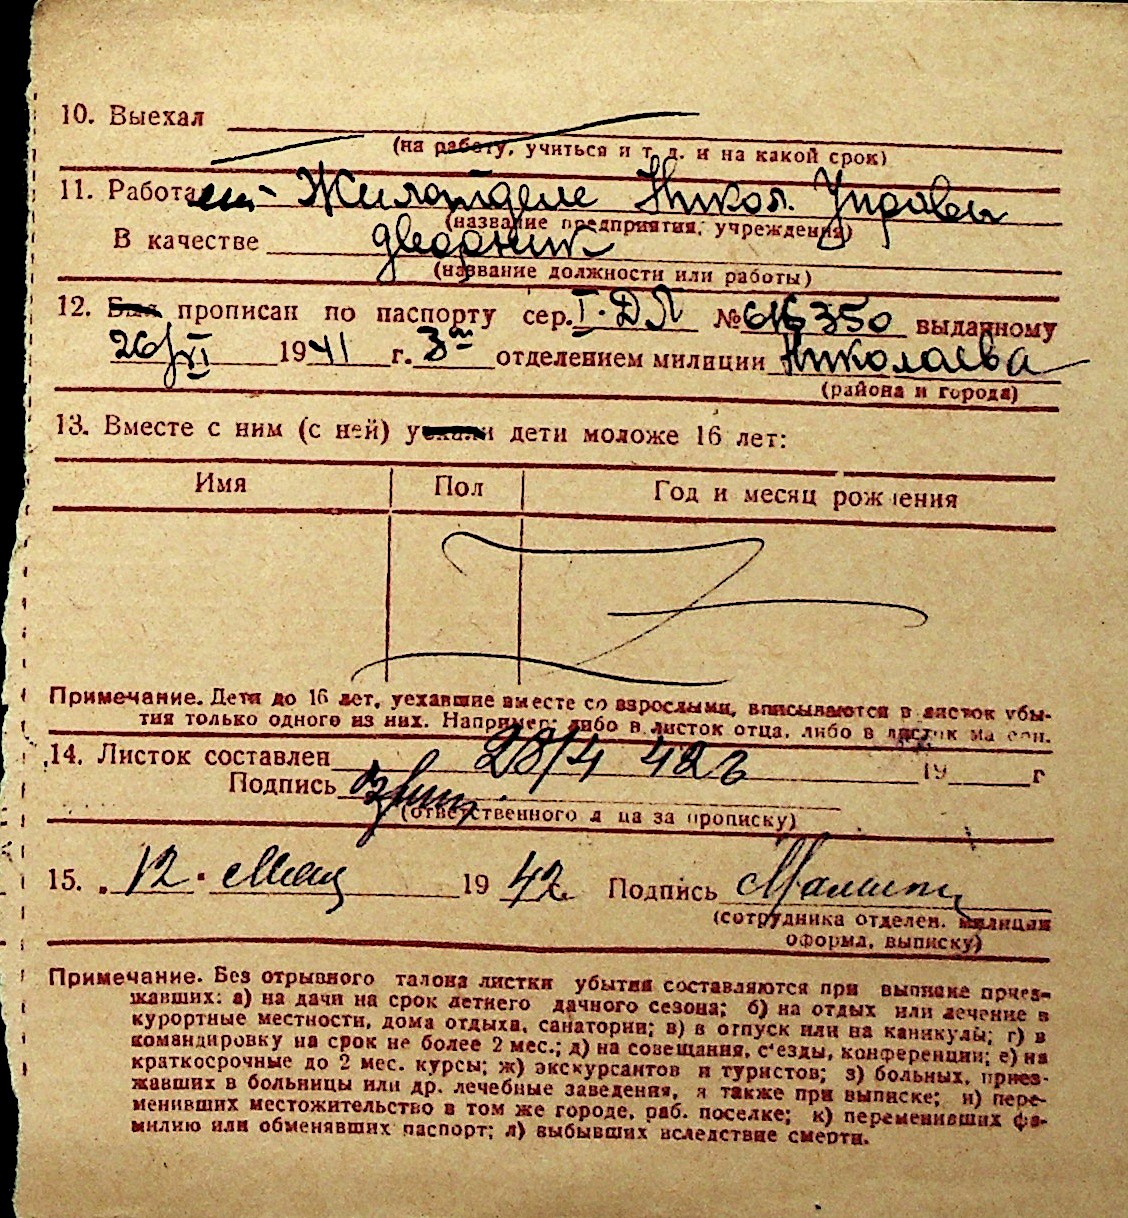 10. Выехал
(на работу, учиться и т. д. и на какой срок)
11. Работает- Жилотделе Никол. Управы
(название предприятия, учреждения)
В качестве дворник
(название должности или работы)
12. Был прописан по паспорту сер. I·ДЛ № 616350 выданному
26/XI 1941 г. 3м отделением милиции Николаева
(района и города)
13. Вместе с ним (с ней) уехали дети моложе 16 лет:
Имя Пол Год и месяц рождения
Примечание. Дети до 16 лет, уехавшие вместе со взрослыми, вписываются в листок убы-
тия только одного из них. Например: либо в листок отца, либо в листок матери.
14. Листок составлен 28/4 42г 19 г
Подпись
(ответственного лица за прописку)
15. 12 · Мая 19 42 Подпись
(сотрудника отделен. милиции
оформл. выписку)
Примечание. Без отрывного талона листки убытия составляются при выписке приез-
жавших: а) на дачи на срок летнего дачного сезона; б) на отдых или лечение в
курортные местности, дома отдыха, санатории; в) в отпуск или на каникулы; г) в
командировку на срок не более 2 мес.; д) на совещания, с'езды, конференции; е) на
краткосрочные до 2 мес. курсы; ж) экскурсантов и туристов; з) больных, приез-
жавших в больницы или др. лечебные заведения, а также при выписке; и) пере-
менивших местожительство в том же городе, раб. поселке; к) переменивших фа-
милию или обменявших паспорт; л) выбывших вследствие смерти.